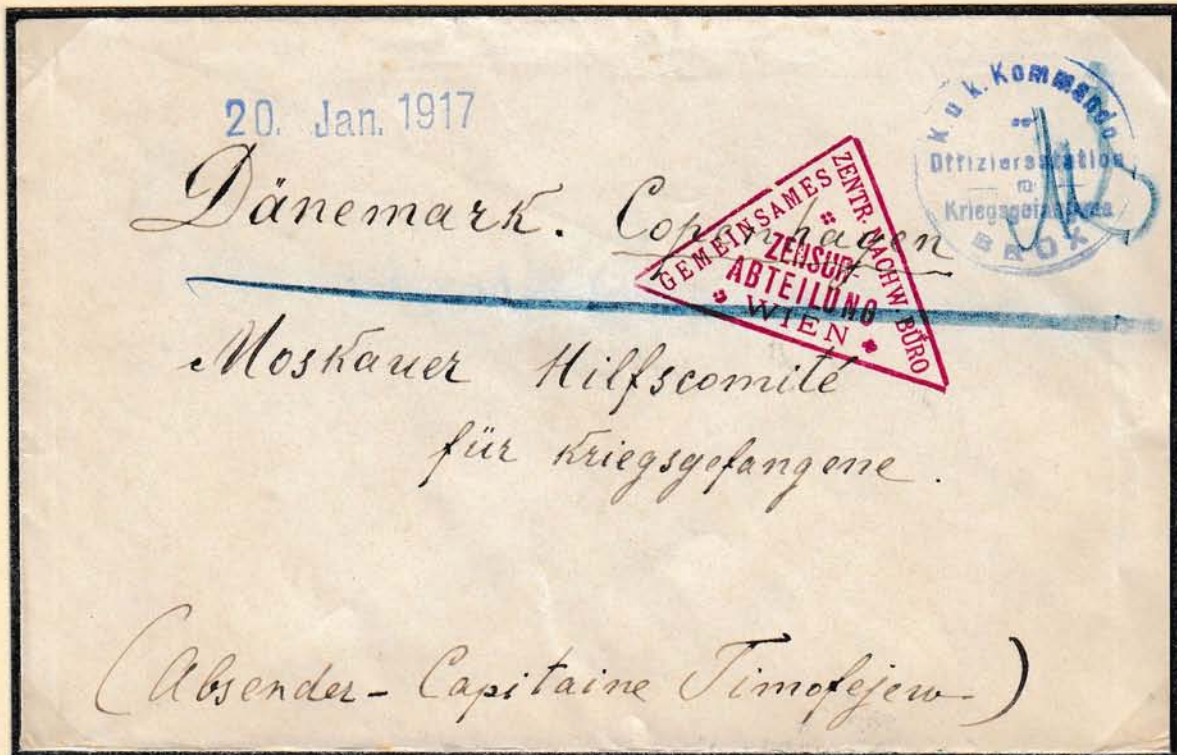 20. Jan. 1917
K. u k. Kommando
Offiziersstation
Kriegsgefangene
BRÜX
Dänemark. Copenhagen
GEMEINSAMES ZENTR. NACHW. BÜRO
ZENSUR-
ABTEILUNG
WIEN
Moskauer Hilfscomité
für Kriegsgefangene.
(Absender - Capitaine Timofejew -)